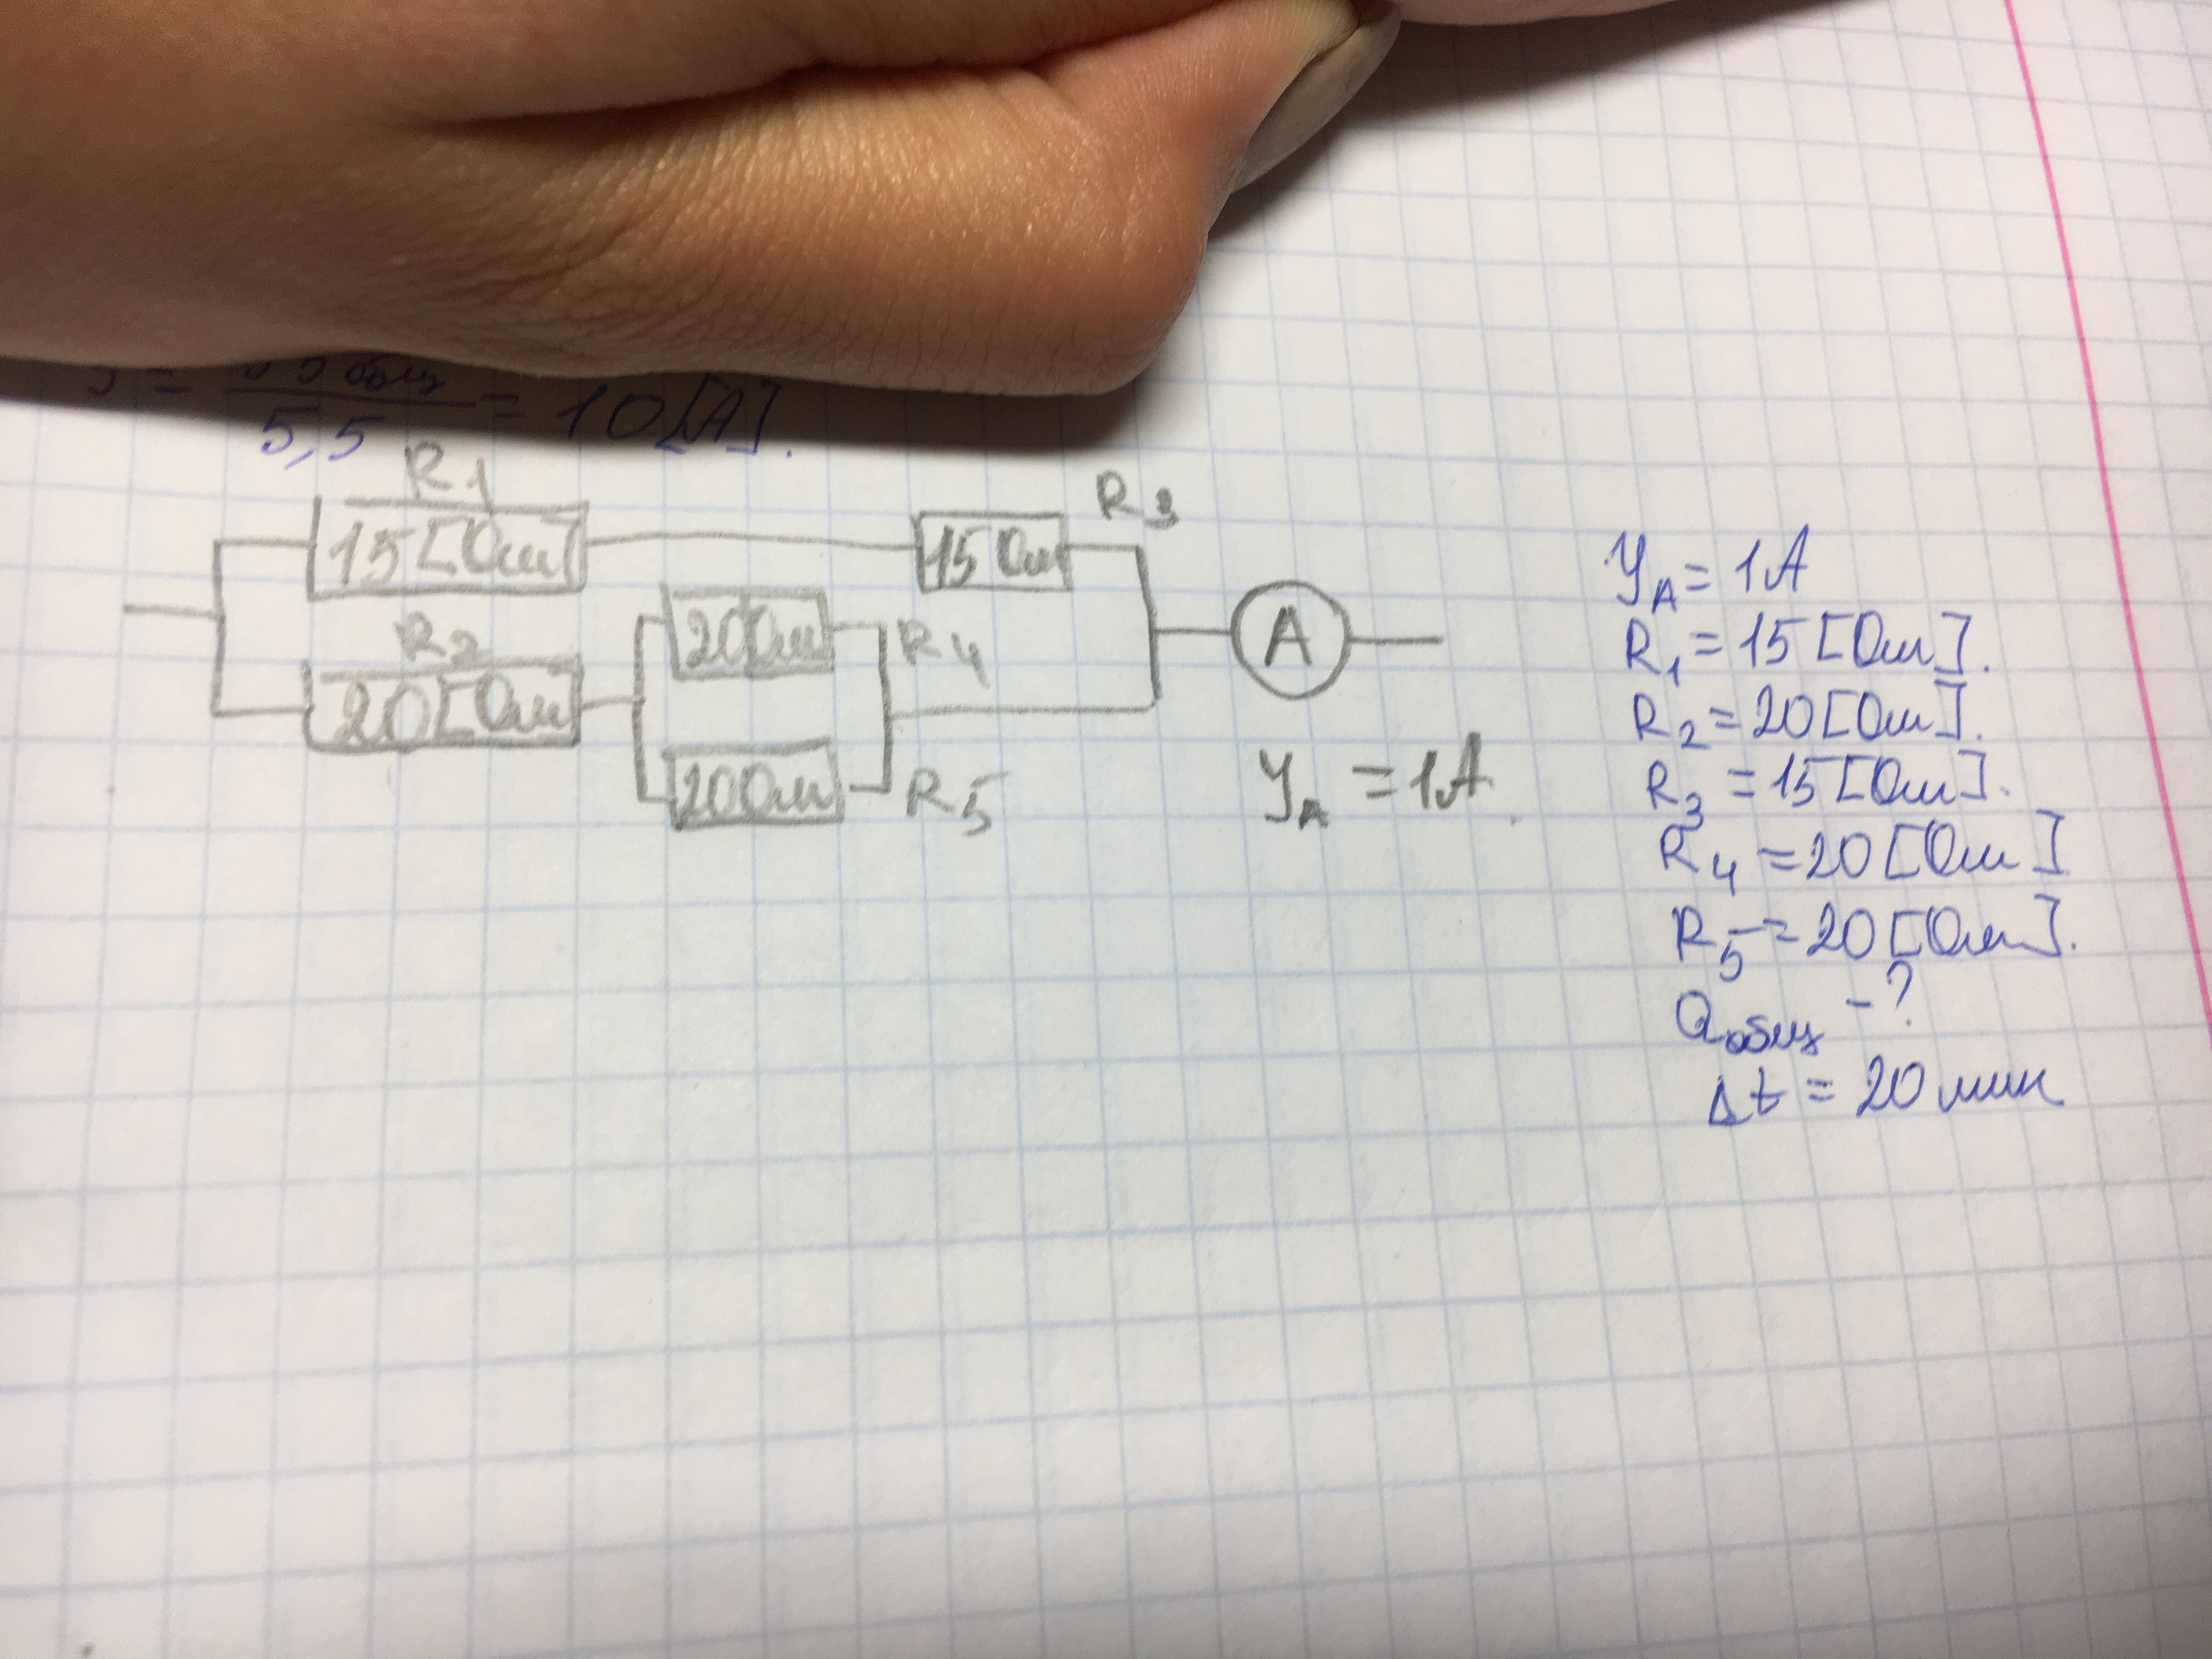 5,5 = 10 [А].
R1
15 [Ом]
15 Ом
R3
R2
20 [Ом]
20 Ом
R4
20 Ом
R5
A
YA = 1A
YA = 1A
R1 = 15 [Ом].
R2 = 20 [Ом].
R3 = 15 [Ом].
R4 = 20 [Ом]
R5 = 20 [Ом].
Qобщ - ?
Δt = 20 мин